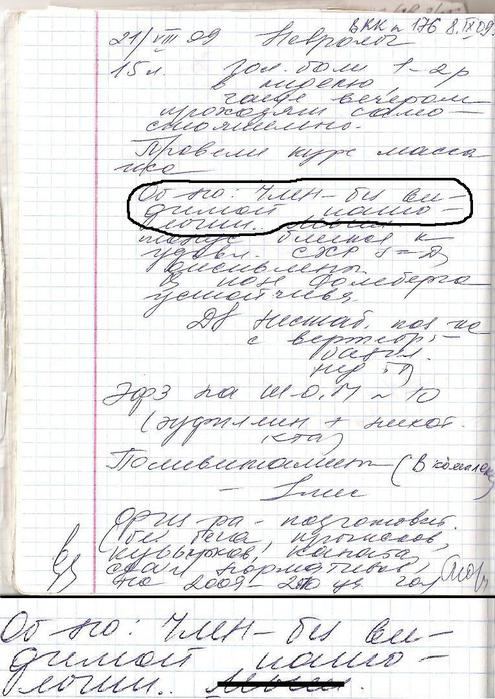 ВКК № 176 8.IX 09.
21/VIII 09 Невролог
15 л. гол. боли 1-2 р
в неделю,
чаще вечером
проходят само-
стоятельно.
Провели курс масса
жа
Об-но: ЧМН - без ви-
димой пато-
логии.
тонус близок к
удовл. СХР S=D
оживлены
В позе Ромберга
устойчив.
DS Нестаб. поз на
с вертебр-
базил.
нед-ти
Эфз на Ш.О.П ~ 10
(эуфиллин + никот.
к-та)
Поливитамины (В комплекс)
- 1 мес
Физ-ра - подготовит.
(без бега, прыжков,
кувырков, каната,
сдачи нормативов)
на 2009-2010 уч. год
Об-но: ЧМН - без ви-
димой пато-
логии..